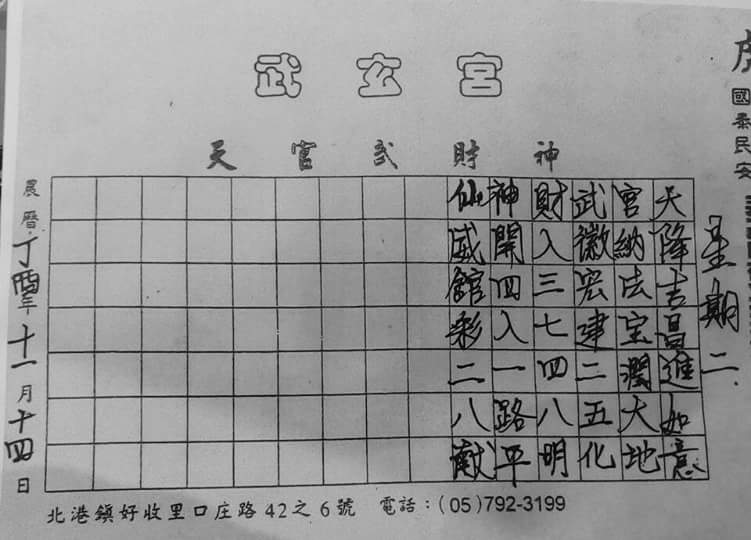 武玄宮
天官武財神
國泰民安
星期二
天降吉昌進如意
官納法宝潤大地
武徽宏建二五化
財入三七四八明
神開四入一路平
仙威館彩二八献
農曆丁酉年十一月十四日
北港鎮好收里口庄路42之6號 電話：(05)792-3199